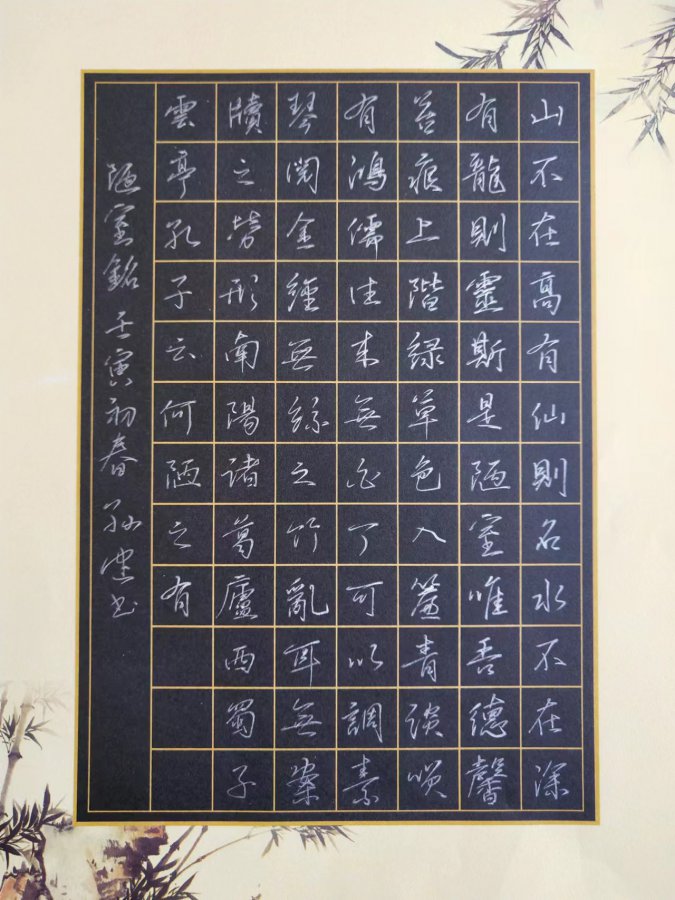 山不在高有仙則名水不在深
有龍則靈斯是陋室唯吾德馨
苔痕上階緑草色入簾青談咲
有鴻儒往来無白丁可以調素
琴閲金經無絲之竹亂耳無案
牘之勞形南陽諸葛廬西蜀子
雲亭孔子云何陋之有
陋室銘 壬寅初春 孙健书